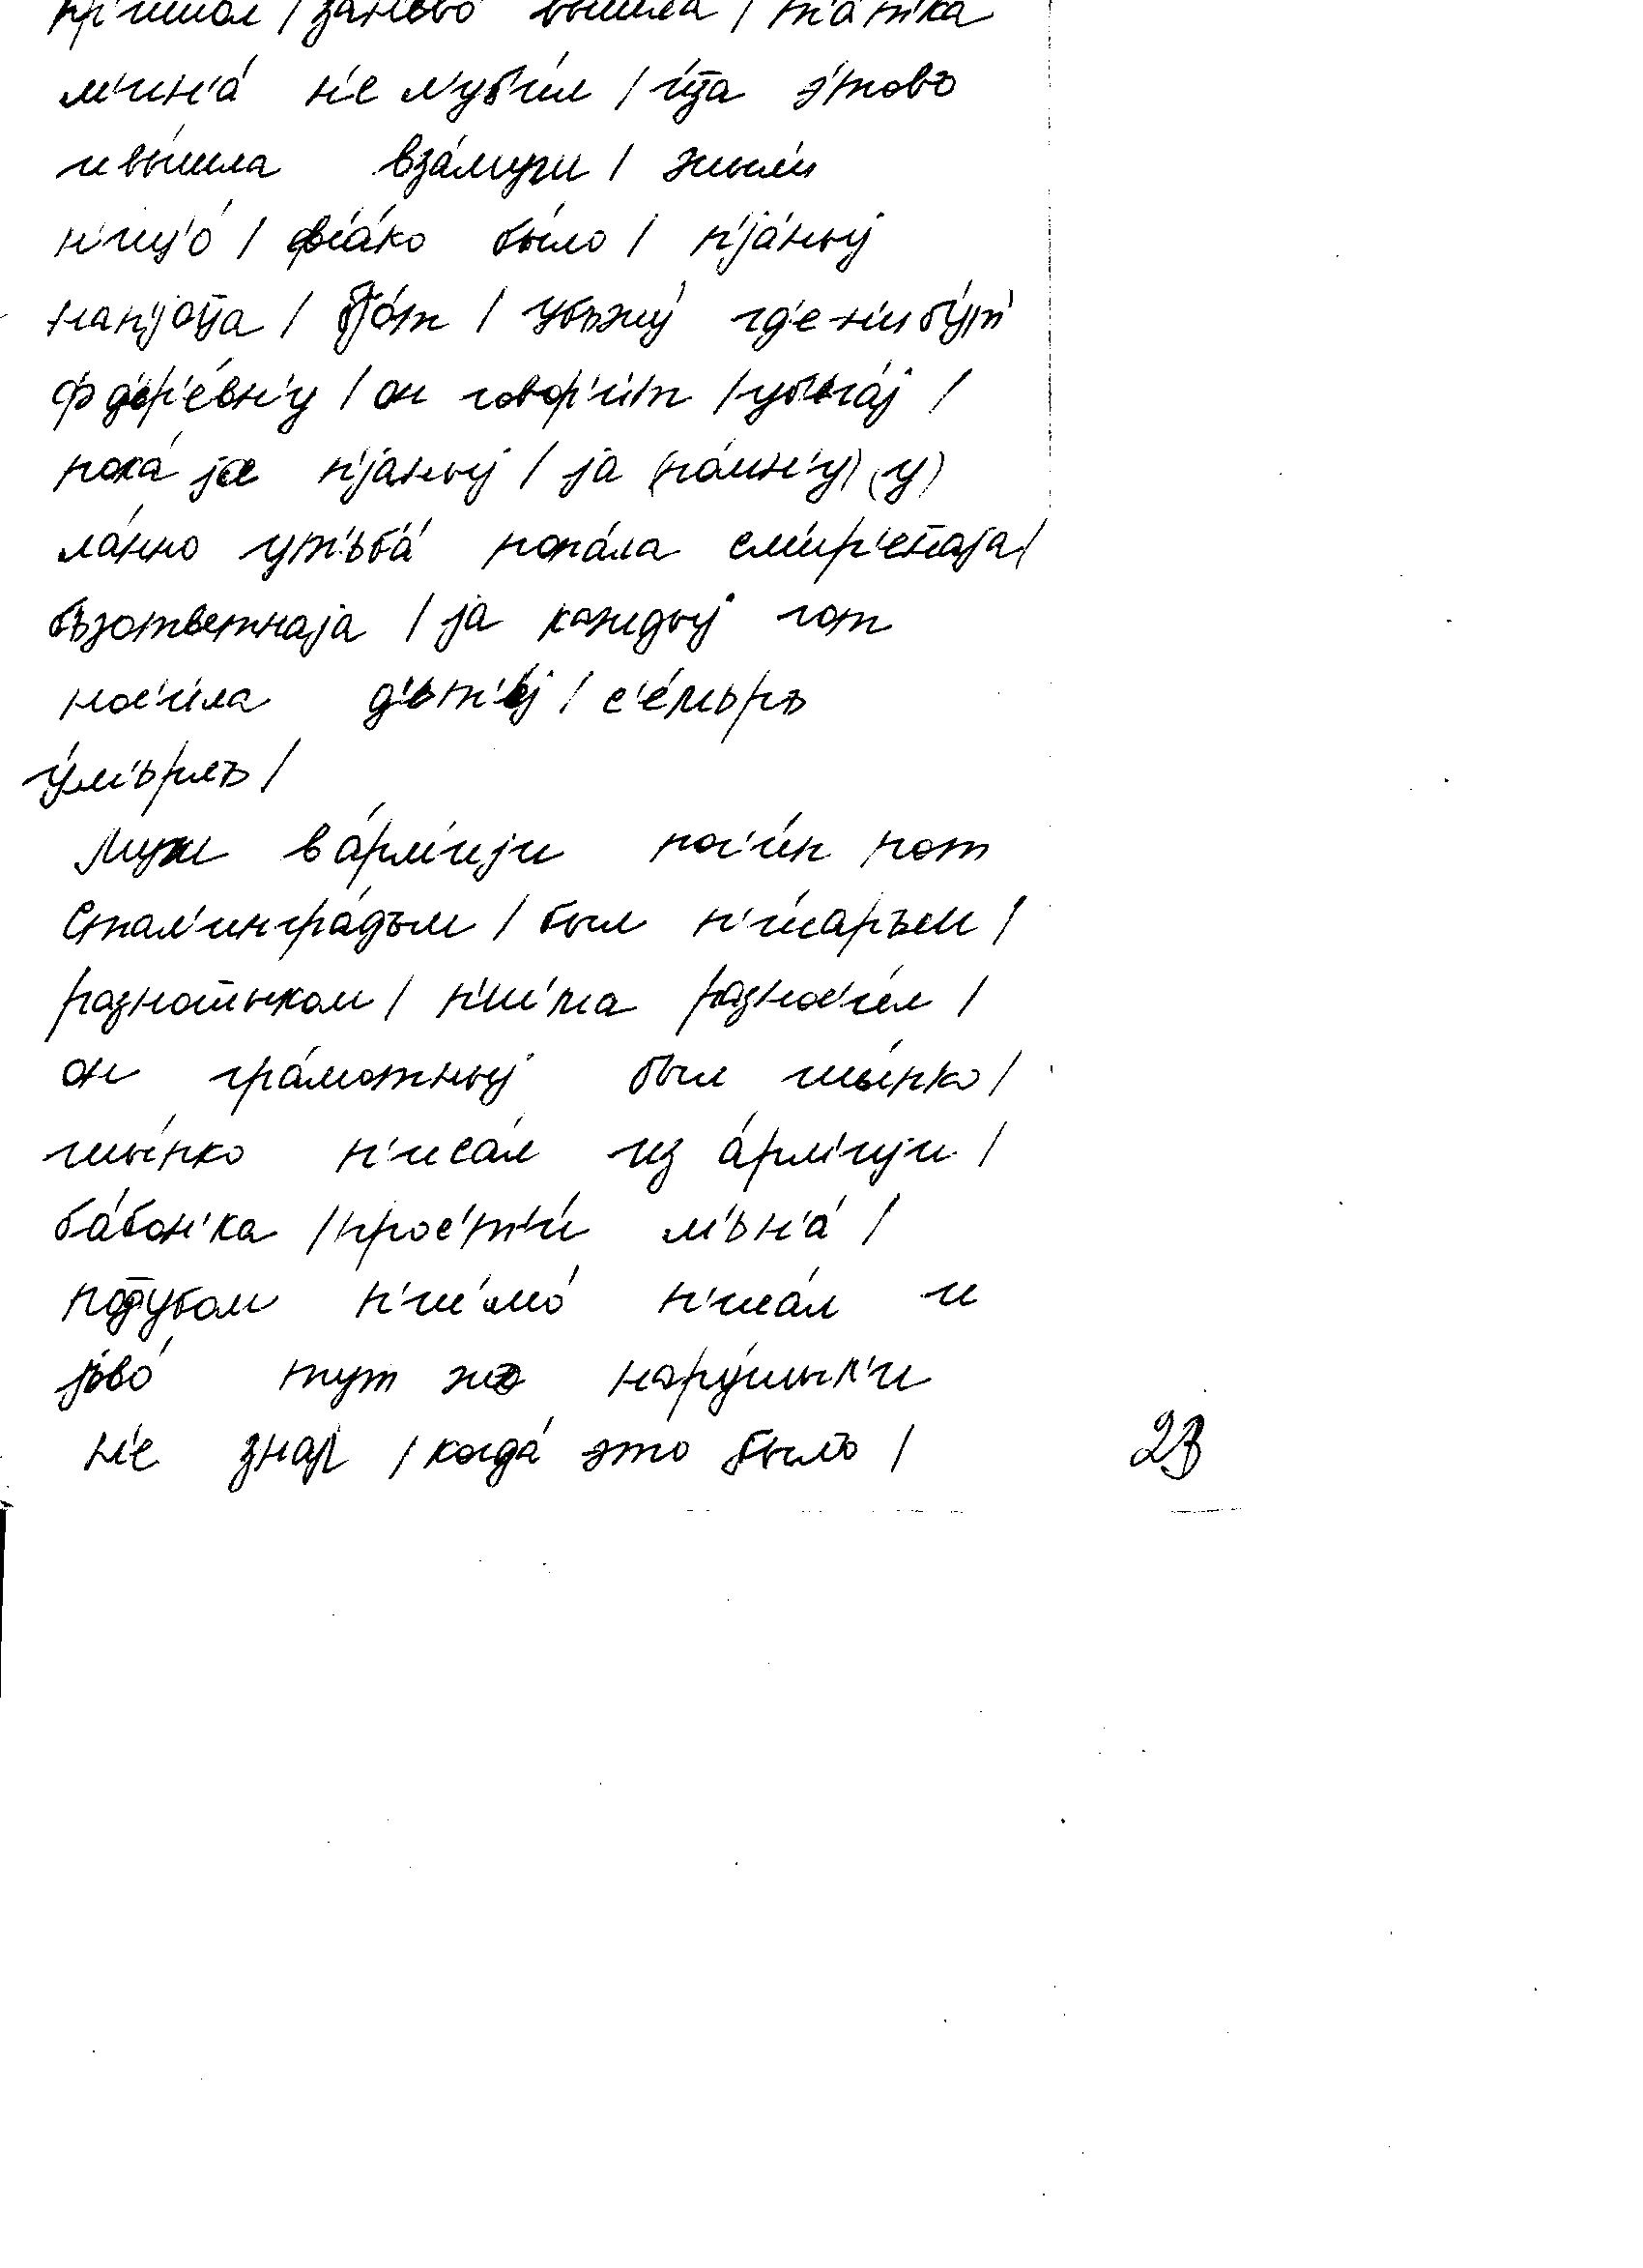 пр'ишол / зан'ово́ вышла / т'а́т'ка
м'ин'а́ н'е л'уб'и́л / и́за э́товъ
и вы́шла вза́муш / жыл'и́
н'ищ'о́ / фс'а́ко бы́ло / п'jа́ныj
нап'jоц̄а / бjо́т / убъжу́ гд'е-н'ибу́т'
ф д'ер'е́вн'у / он говор'и́т / убъга́j /
пока́ jа п'jаныj / ja (по́мн'у) (у)
ла́нно у т'ьб'а́ попа́ла см'и́р'еннаja /
бъзответнаja / ja каждыj гот
нос'и́ла д'ьт'е́j / с'е́мьръ
у́м'ьрлъ /
Муж в а́рм'иjи пог'и́п пот
Стал'ингра́дъм / был п'и́саръм /
разнощыком / п'и́с'ма разнос'и́л /
он гра́мотныj был шы́пко /
шы́пко п'иса́л из а́рм'иjи /
ба́бон'ка / прос'т'и́ м'ьн'а́ /
под дубом п'ис'мо́ п'иса́л и
jово́ тут жо нару́шыл'и
н'е знаj / когда́ это было /
23